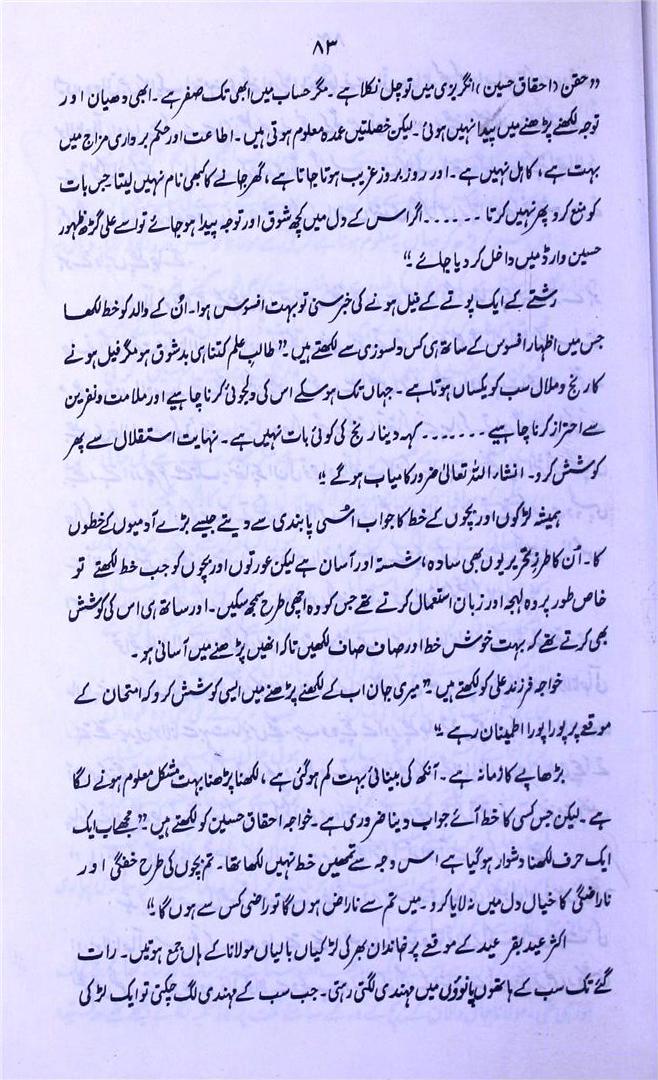 ۸۳
"حقن (احقاق حسین) انگریزی میں تو چل نکلا ہے۔ مگر حساب میں ابھی تک صفر ہے۔ ابھی دھیان اور
توجہ لکھنے پڑھنے میں پیدا نہیں ہوئی۔ لیکن خصلتیں عمدہ معلوم ہوتی ہیں۔ اطاعت اور حکم برداری مزاج میں
بہت ہے، کاہل نہیں ہے۔ اور روز بروز غریب ہوتا جاتا ہے، گھر جانے کا کبھی نام نہیں لیتا جس بات
کو منع کرو پھر نہیں کرتا ...... اگر اس کے دل میں کچھ شوق اور توجہ پیدا ہو جائے تو اسے علی گڑھ ظہور
حسین وارڈ میں داخل کر دیا جائے۔"
رشتے کے ایک پوتے کے فیل ہونے کی خبر سنی تو بہت افسوس ہوا۔ اُن کے والد کو خط لکھا
جس میں اظہار افسوس کے ساتھ ہی کس دلسوزی سے لکھتے ہیں۔ "طالب علم کتنا ہی بدشوق ہو مگر فیل ہونے
کا رنج و ملال سب کو یکساں ہوتا ہے۔ جہاں تک ہو سکے اس کی دلجوئی کرنا چاہیے اور ملامت و نفرین
سے احتراز کرنا چاہیے ....... کہہ دینا رنج کی کوئی بات نہیں ہے۔ نہایت استقلال سے پھر
کوشش کرو۔ انشاء اللہ تعالیٰ ضرور کامیاب ہو گے"
ہمیشہ لڑکوں اور بچوں کے خط کا جواب اسی پابندی سے دیتے جیسے بڑے آدمیوں کے خطوں
کا۔ اُن کا طرزِ تحریر یوں بھی سادہ، شستہ اور آسان ہے لیکن عورتوں اور بچوں کو جب خط لکھتے تو
خاص طور پر وہ لہجہ اور زبان استعمال کرتے تھے جس کو وہ اچھی طرح سمجھ سکیں۔ اور ساتھ ہی اس کی کوشش
بھی کرتے تھے کہ بہت خوش خط اور صاف صاف لکھیں تاکہ انھیں پڑھنے میں آسانی ہو۔
خواجہ فرزند علی کو لکھتے ہیں۔ "میری جان اب کے لکھنے پڑھنے میں ایسی کوشش کرو کہ امتحان کے
موقعے پر پورا پورا اطمینان رہے۔"
بڑھاپے کا زمانہ ہے۔ آنکھ کی بینائی بہت کم ہو گئی ہے، لکھنا پڑھنا بہت مشکل معلوم ہونے لگا
ہے۔ لیکن جس کسی کا خط آئے جواب دینا ضروری ہے۔ خواجہ احقاق حسین کو لکھتے ہیں۔ "مجھے اب ایک
ایک حرف لکھنا دشوار ہو گیا ہے اس وجہ سے تمھیں خط نہیں لکھا تھا۔ تم بچوں کی طرح خفگی اور
ناراضگی کا خیال دل میں نہ لایا کرو۔ میں تم سے ناراض ہوں گا تو راضی کس سے ہوں گا۔"
اکثر عید بقر عید کے موقعے پر خاندان بھر کی لڑکیاں بالیاں مولانا کے ہاں جمع ہوتیں۔ رات
گئے تک سب کے ہاتھوں پانوؤں میں مہندی لگتی رہتی۔ جب سب کے مہندی لگ چکتی تو ایک لڑکی